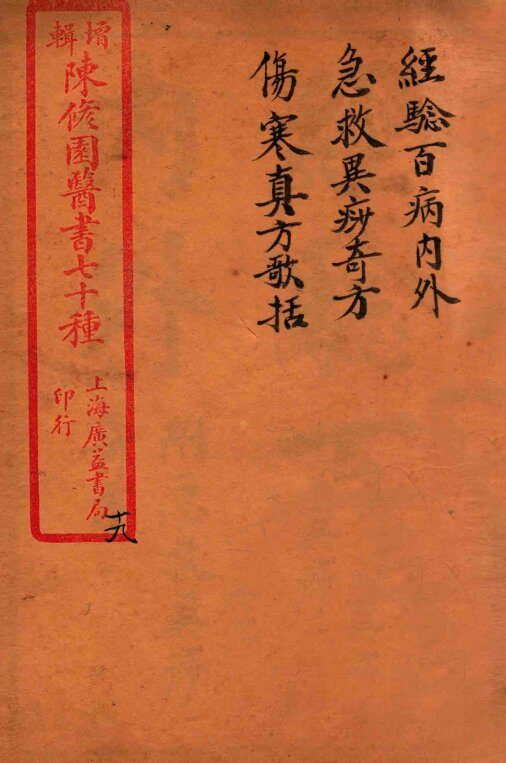 經驗百病內外
急救異痧奇方
傷寒真方歌括
增輯
陳修園醫書七十種
上海廣益書局
印行
十九